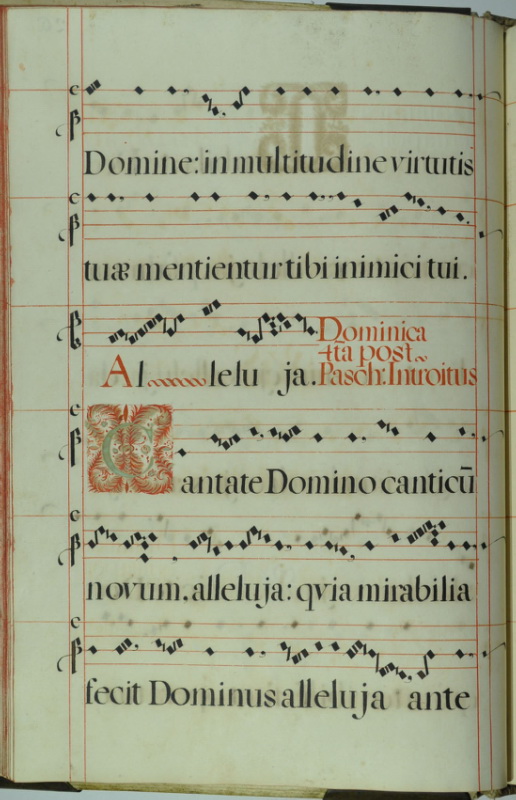 Domine: in multitudine virtutis
tuæ mentientur tibi inimici tui.
Al lelu ja. Dominica
4ta post
Pasch: Introitus
Cantate Domino canticū
novum, alleluja: qvia mirabilia
fecit Dominus alleluja ante